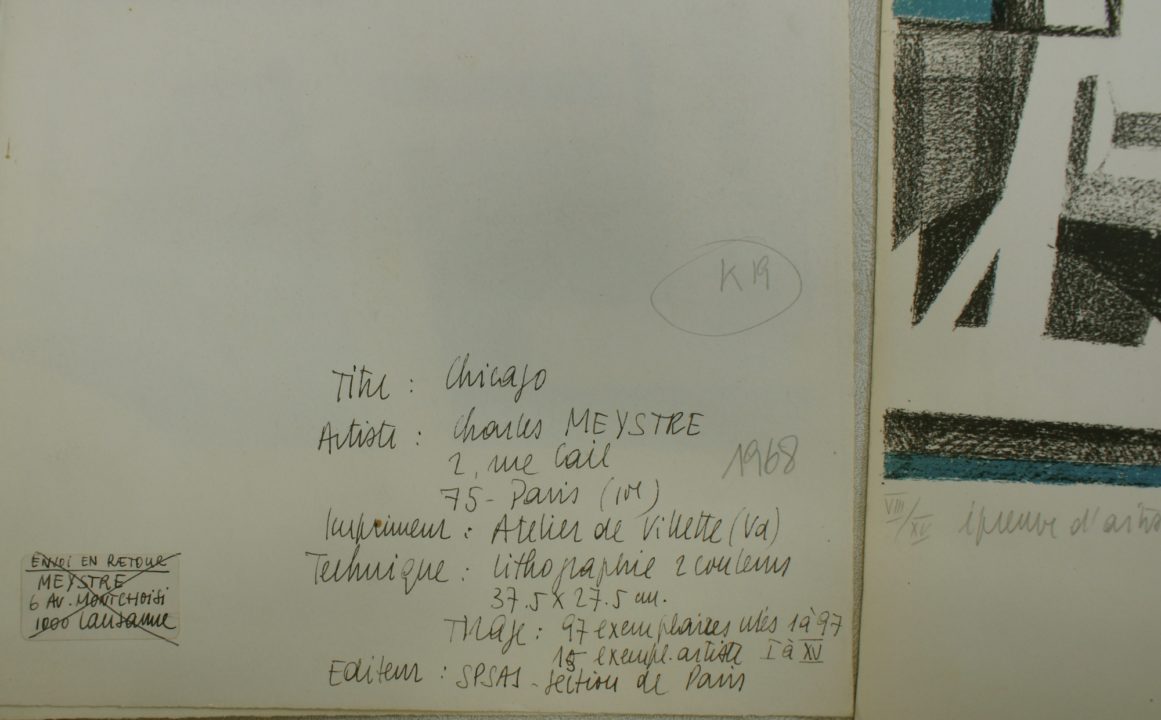 K 19
Titre : Chicago
Artiste : Charles MEYSTRE
2, rue Cail
1968
75 - Paris (10e)
Imprimeur : Atelier de Villette (Vd)
Technique : Lithographie 2 couleurs
37.5 x 27.5 cm.
Tirage : 97 exemplaires n/és 1 à 97
15 exempl. artiste I à XV
Editeur : SPSAS - Section de Paris
ENVOI EN RETOUR
MEYSTRE
6 AV. MONTCHOISI
1000 Lausanne
VIII/XV épreuve d'artis